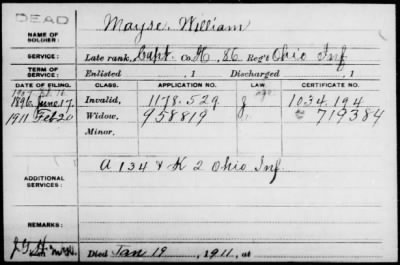 DEAD
NAME OF SOLDIER: Mayse, William
SERVICE: Late rank, Capt. Co. H, 86 Reg't Ohio Inf
TERM OF SERVICE: Enlisted , 1 Discharged , 1
DATE OF FILING. CLASS. APPLICATION NO. LAW. CERTIFICATE NO.
1896 June 17. Invalid, 1178.529 1034.194
1911 Feb 20 Widow, 958819 719384
Minor,
ADDITIONAL SERVICES: A 134 & K 2 Ohio Inf
REMARKS:
Died Jan 19, 1911, at